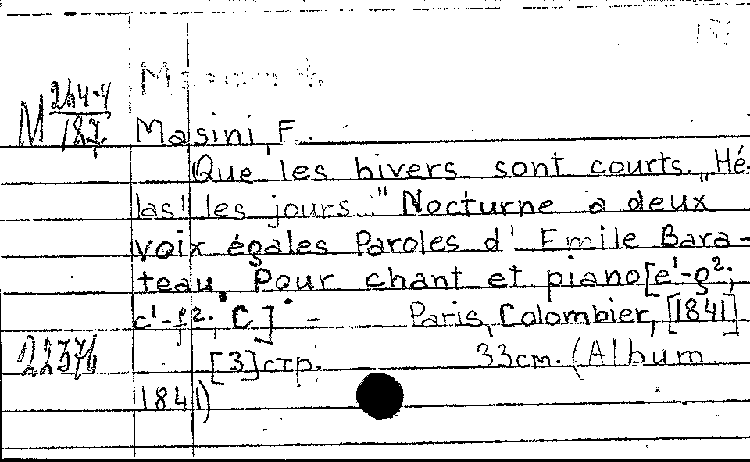 M 264-4
187
Masini, F.
Que les hivers sont courts. „Hé-
las! les jours..." Nocturne a deux
voix égales Paroles d' Emile Bara-
teau. Pour chant et piano [e¹-g²;
c¹-f²; C] - Paris, Colombier, [1841]
22376 [3] стр. 33 см. (Album
1841)